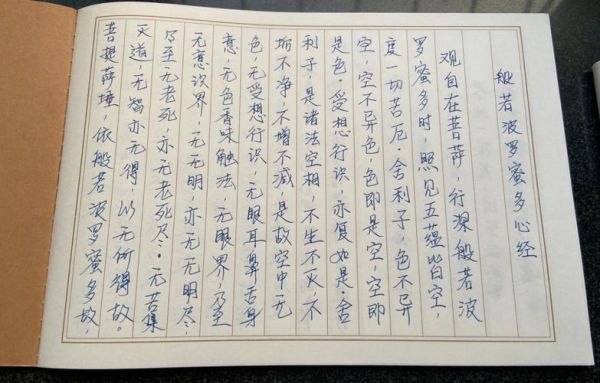 般若波罗蜜多心经
观自在菩萨，行深般若波
罗蜜多时，照见五蕴皆空，
度一切苦厄。舍利子，色不异
空，空不异色，色即是空，空即
是色，受想行识，亦复如是。舍
利子，是诸法空相，不生不灭，不
垢不净，不增不减，是故空中无
色，无受想行识，无眼耳鼻舌身
意，无色香味触法，无眼界，乃至
无意识界，无无明，亦无无明尽，
乃至无老死，亦无老死尽。无苦集
灭道，无智亦无得，以无所得故。
菩提萨埵，依般若波罗蜜多故，